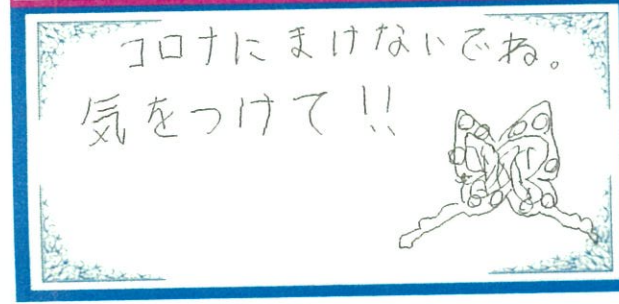 コロナにまけないでね。
気をつけて!!